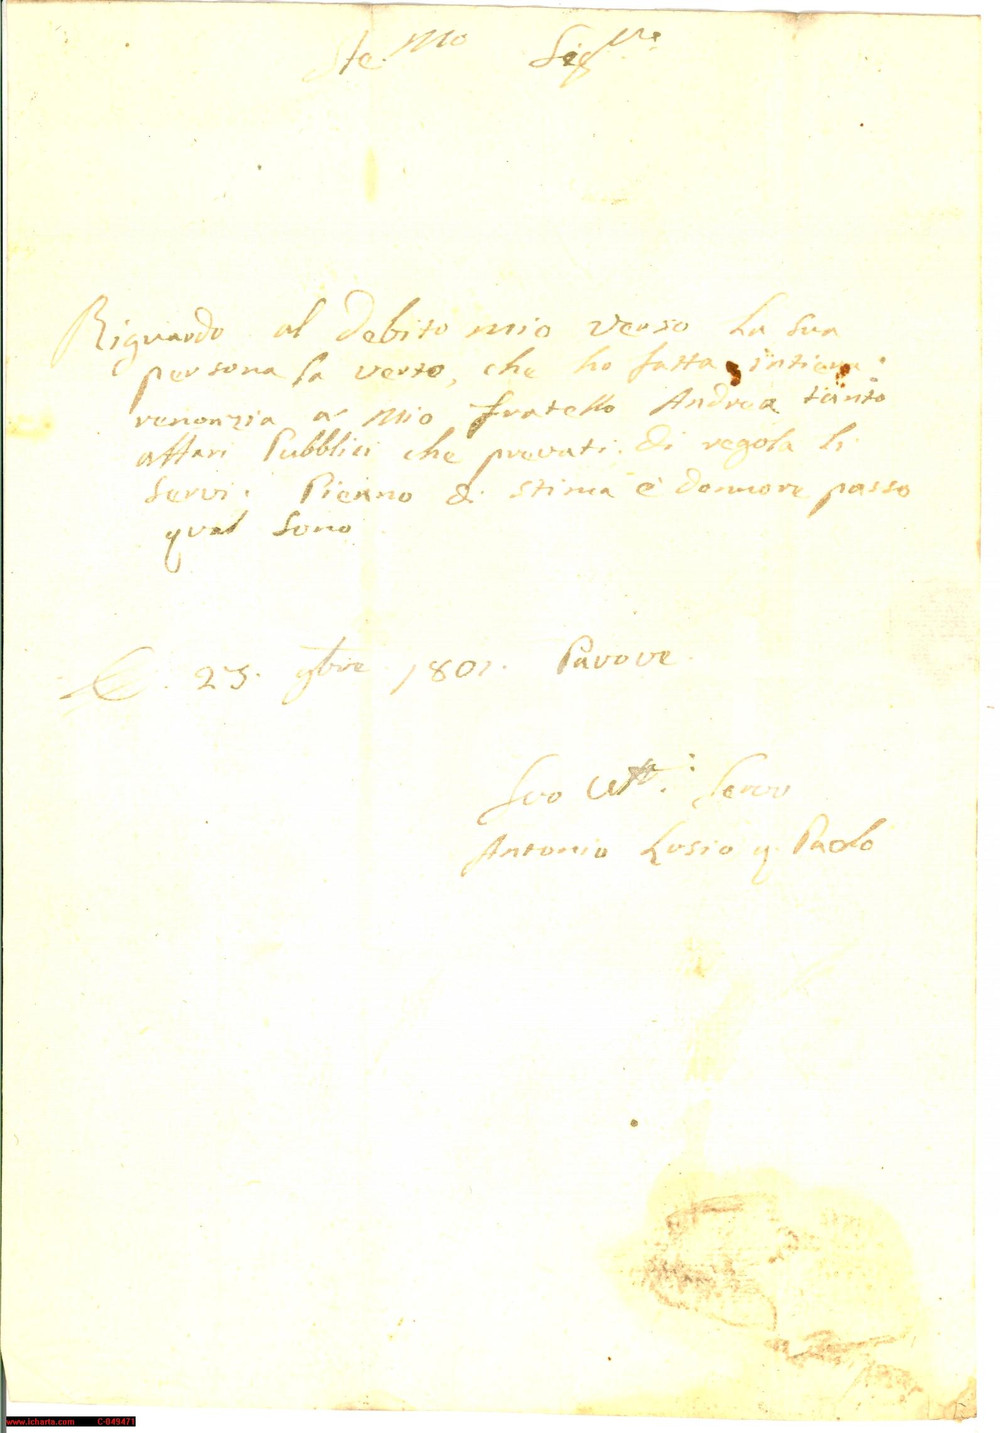 Ste.mo Sig.re
Riguardo al debito mio verso la sua
persona la verto, che ho fatta intiera
renonzia a mio fratello Andrea tanto
affari Pubblici che prevati. di regola li
servi. Pieno di stima è donnore passo
qual sono
23. 9bre 1801. Pavove
Suo Servo
Antonio Lusio q. Paolo
www.icharta.com C-849471